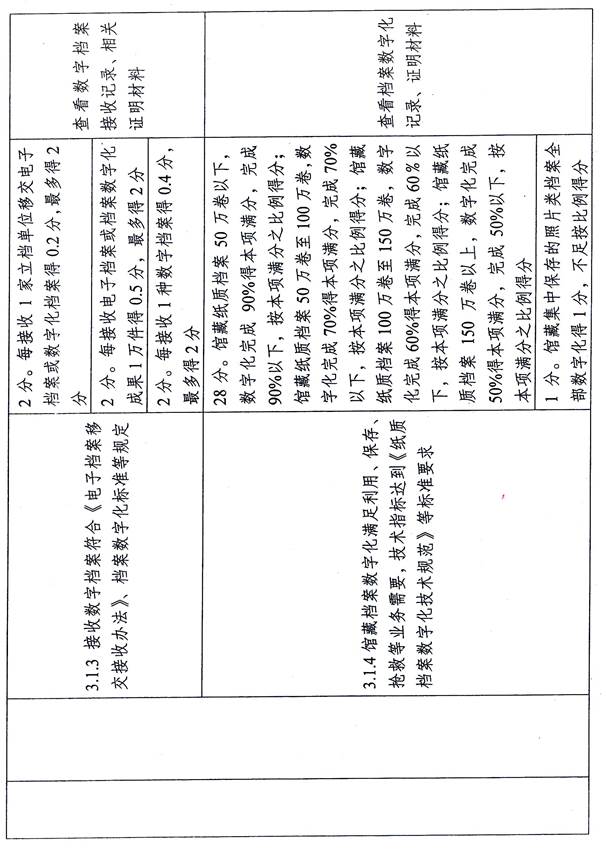 3.1.3 接收数字档案符合《电子档案移
交接收办法》、档案数字化标准等规定
2 分。每接收 1 家立档单位移交电子
档案或数字化档案得 0.2 分，最多得 2
分
2 分。每接收电子档案或档案数字化
成果 1 万件得 0.5 分，最多得 2 分
2 分。每接收 1 种数字档案得 0.4 分，
最多得 2 分
查看数字档案
接收记录、相关
证明材料
3.1.4 馆藏档案数字化满足利用、保存、
抢救等业务需要，技术指标达到《纸质
档案数字化技术规范》等标准要求
28 分。馆藏纸质档案 50 万卷以下，
数字化完成 90%得本项满分，完成
90%以下，按本项满分之比例得分；
馆藏纸质档案 50 万卷至 100 万卷，数
字化完成 70%得本项满分，完成 70%
以下，按本项满分之比例得分；馆藏
纸质档案 100 万卷至 150 万卷，数字
化完成 60%得本项满分，完成 60%以
下，按本项满分之比例得分；馆藏纸
质档案 150 万卷以上，数字化完成
50%得本项满分，完成 50%以下，按
本项满分之比例得分
1 分。馆藏集中保存的照片类档案全
部数字化得 1 分，不足按比例得分
查看档案数字化
记录、证明材料